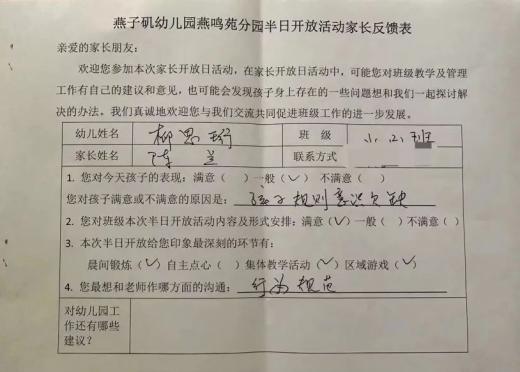 燕子矶幼儿园燕鸣苑分园半日开放活动家长反馈表
亲爱的家长朋友：
欢迎您参加本次家长开放日活动，在家长开放日活动中，可能您对班级教学及管理
工作有自己的建议和意见，也可能会发现孩子身上存在的一些问题想和我们一起探讨解
决的办法。我们真诚地欢迎您与我们交流共同促进班级工作的进一步发展。
幼儿姓名 柳思 班 级 小2班
家长姓名 陈兰 联系方式
1. 您对今天孩子的表现：满意（ ）一般（✓）不满意（ ）
您对孩子满意或不满意的原因是：孩子规则意识欠缺
2. 您对班级本次半日开放活动内容及形式安排：满意（✓）一般（ ）不满意（ ）
3. 本次半日开放给您印象最深刻的环节有：
晨间锻炼（✓）自主点心（ ）集体教学活动（✓）区域游戏（✓）
4. 您最想和老师作哪方面的沟通：行为规范
对幼儿园工
作还有哪些
建议？